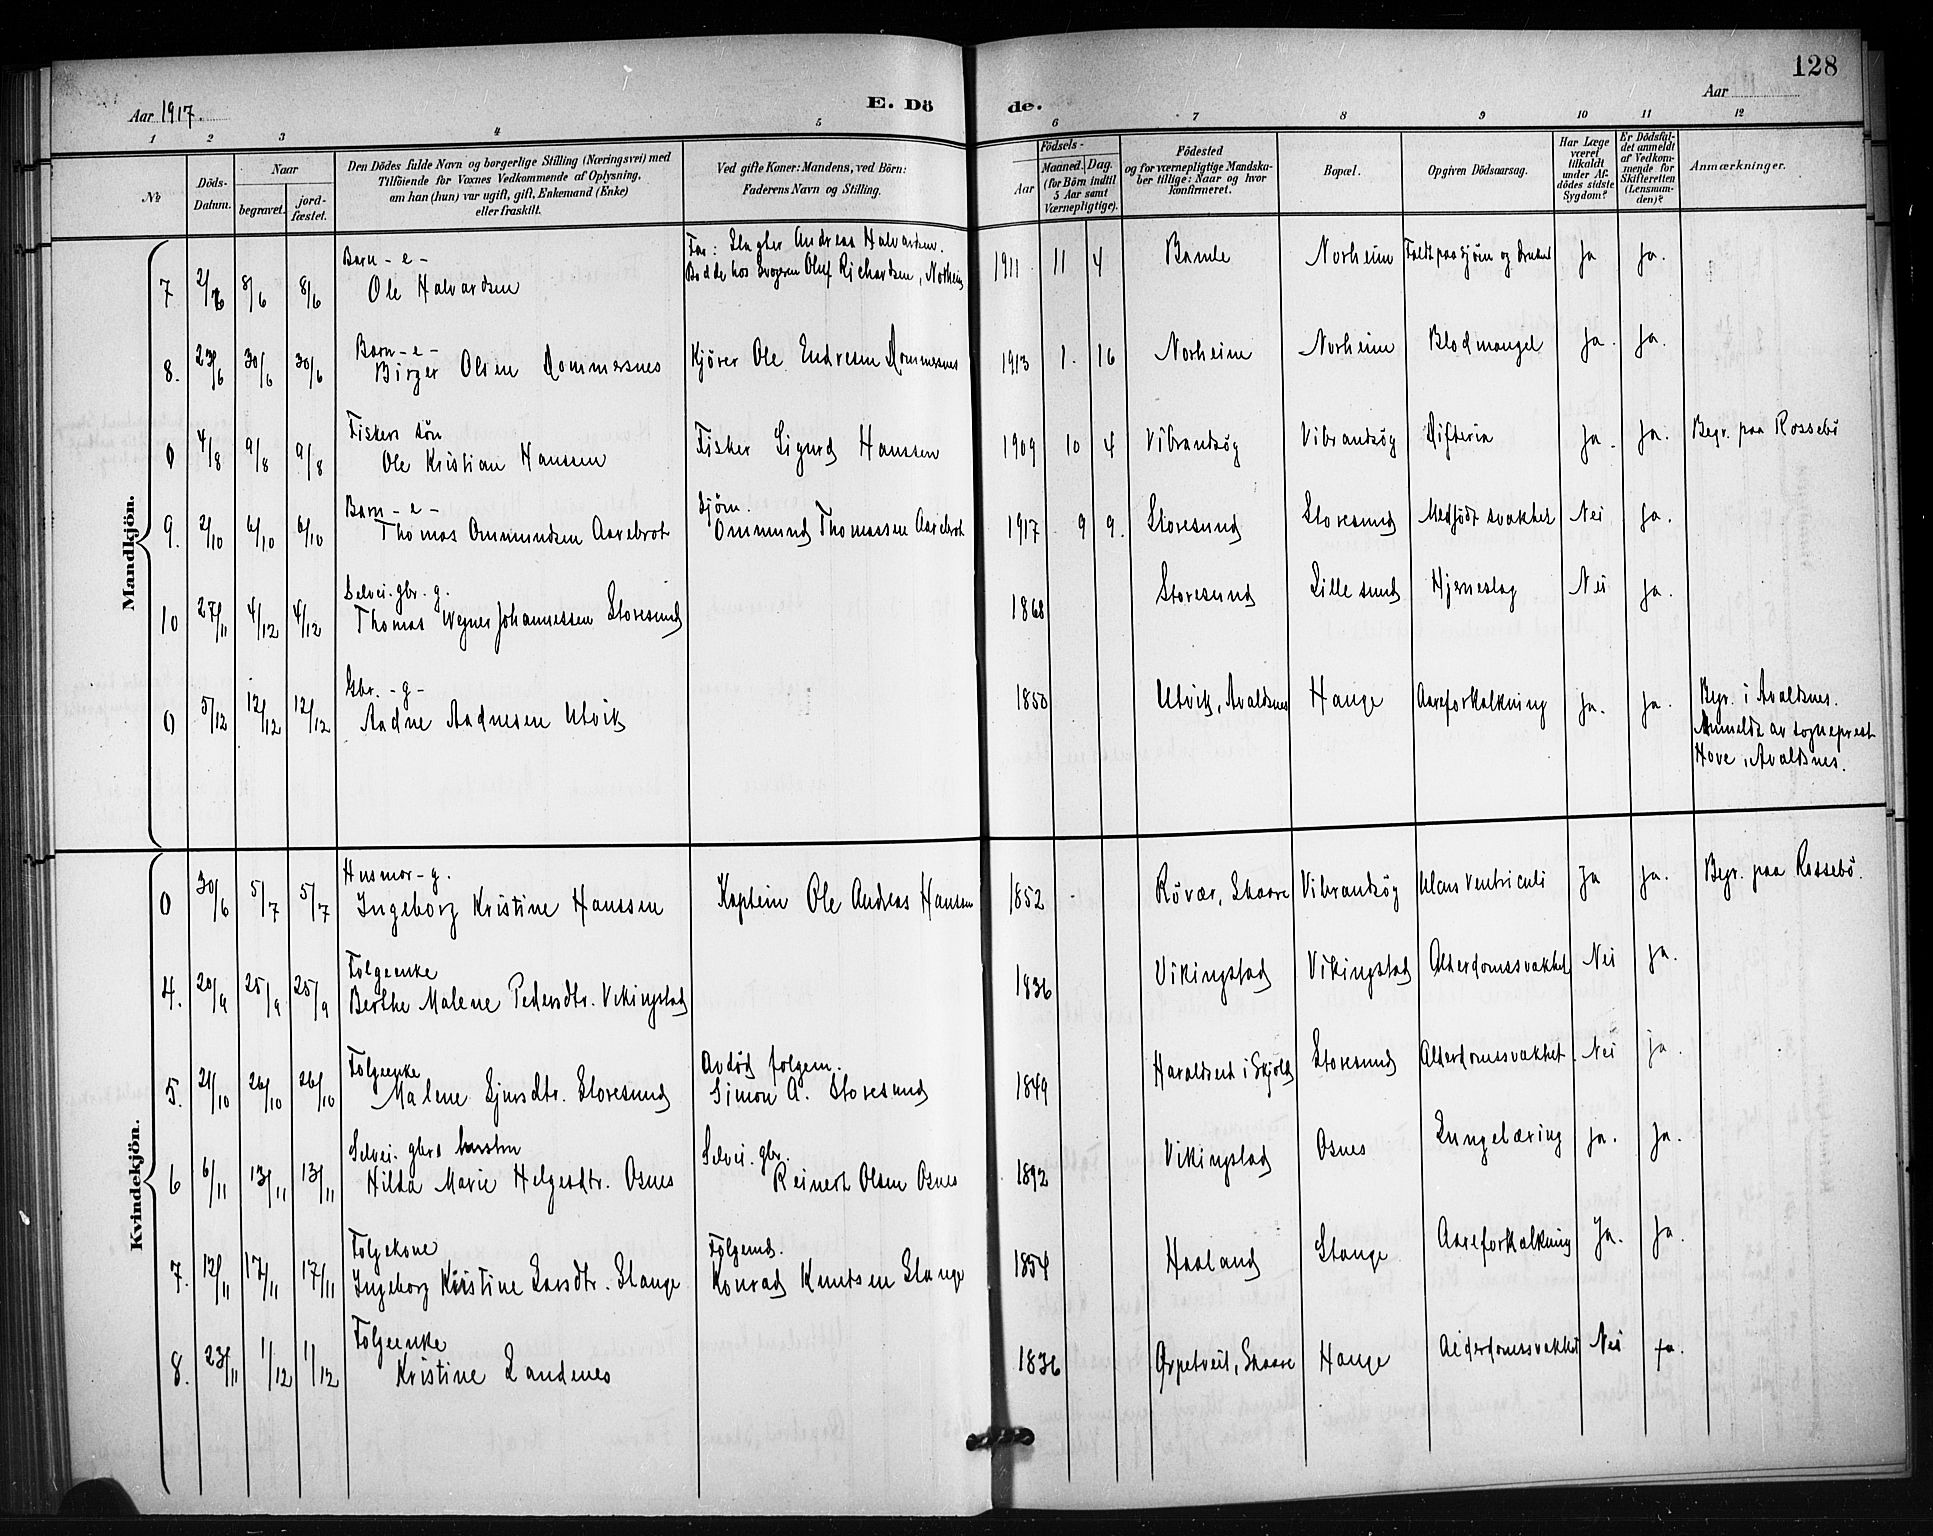 128
Aar 1917.
E. Dö
de.
Aar
1 2 3 4 5 6 7 8 9 10 11 12
№
Döds-Datum.
Naar
begravet.
jord-fæstet.
Den Dödes fulde Navn og borgerlige Stilling (Næringsvei) med
Tilföiende for Voxnes Vedkommende af Oplysning,
om han (hun) var ugift, gift, Enkemand (Enke)
eller fraskilt.
Ved gifte Koner: Mandens, ved Börn:
Faderens Navn og Stilling.
Födsels-
Aar
Maaned. Dag.
(for Börn indtil
5 Aar samt
Værnepligtige).
Födested
og for værnepligtige Mandska-
ber tillige: Naar og hvor
konfirmeret.
Bopæl.
Opgiven Dödsaarsag.
Har Læge
været
tilkaldt
under Af-
dödes sidste
Sygdom?
Er Dödsfal-
det anmeldt
af Vedkom-
mende for
Skifteretten
(Lensman-
den)?
Anmærkninger.
Mandkjön.
Barn - e -
Far: Slagter Andreas Halvardsen.
Bodde hos Svogeren Oluf Richardsen, Norheim
7 2/6 8/6 8/6 Ole Halvardsen 1911 11 4 Bamle Norheim Faldt paa sjøen og druknet Ja Ja.
Barn - e -
8. 23/6 30/6 30/6 Birger Olsen Dommersnes Kjører Ole Endresen Dommersnes 1913 1. 16 Norheim Norheim Blodmangel Ja. Ja.
Fiskers søn
0 4/8 9/8 9/8 Ole Kristian Hanssen Fisker Sigurd Hanssen 1909 10 4 Vibrandsøg Vibrandsøg Difteria Ja. Ja. Begr. paa Rossebö
Barn - e -
Sjøm.
9. 2/10 6/10 6/10 Thomas Ommundsen Aarebrot Ommund Thomassen Aarebrot 1917 9 9. Storesund Storesund Medfödt svakhet Nei Ja.
Selvei. gbr. g.
10 27/11 4/12 4/12 Thomas Wegner Johannessen Storesund 1868 Storesund Lillesund Hjerneslag Nei Ja.
Gbr. - g -
0 5/12 12/12 12/12 Aadne Aadnesen Utvik 1850 Utvik, Avaldsnes Hauge Aareforkalkning Ja. Ja. Begr. i Avaldsnes.
Anmeldt av sogneprest
Hove, Avaldsnes.
Kvindekjön.
Husmor - g.
0 30/6 5/7 5/7 Ingeborg Kristine Hanssen Kaptein Ole Andreas Hansen 1852 Rövær, Skaare Vibrandsøg Ulcus Ventriculi Ja Ja. Begr. paa Rossebö.
Folgeenke
4. 20/9 25/9 25/9 Berthe Malene Pedersdtr. Vikingstad 1836 Vikingstad Vikingstad Alderdomssvakhet Nei Ja.
Folgeenke
Avdöd folgem.
5. 21/10 26/10 26/10 Malene Sjursdtr. Storesund Simon A. Storesund 1849 Haraldseid i Skjold Storesund Alderdomssvakhet. Nei ja.
Selvei. gbrs hustru
Selvei. gbr.
6 6/11 13/11 13/11 Hilda Marie Helgesdtr. Osnes Reinert Olsen Osnes 1892 Vikingstad Osnes Lungetæring Ja. Ja.
Folgekone
Folgemd.
7. 12/11 17/11 17/11 Ingeborg Kristine Larsdtr. Stange Konrad Knutsen Stange 1854 Haaland Stange Aareforkalkning Ja. Ja.
Folgeenke
8. 23/11 1/12 1/12 Kristine Landenes 1836 Skaare Hauge Alderdomssvakhet Nei Ja.